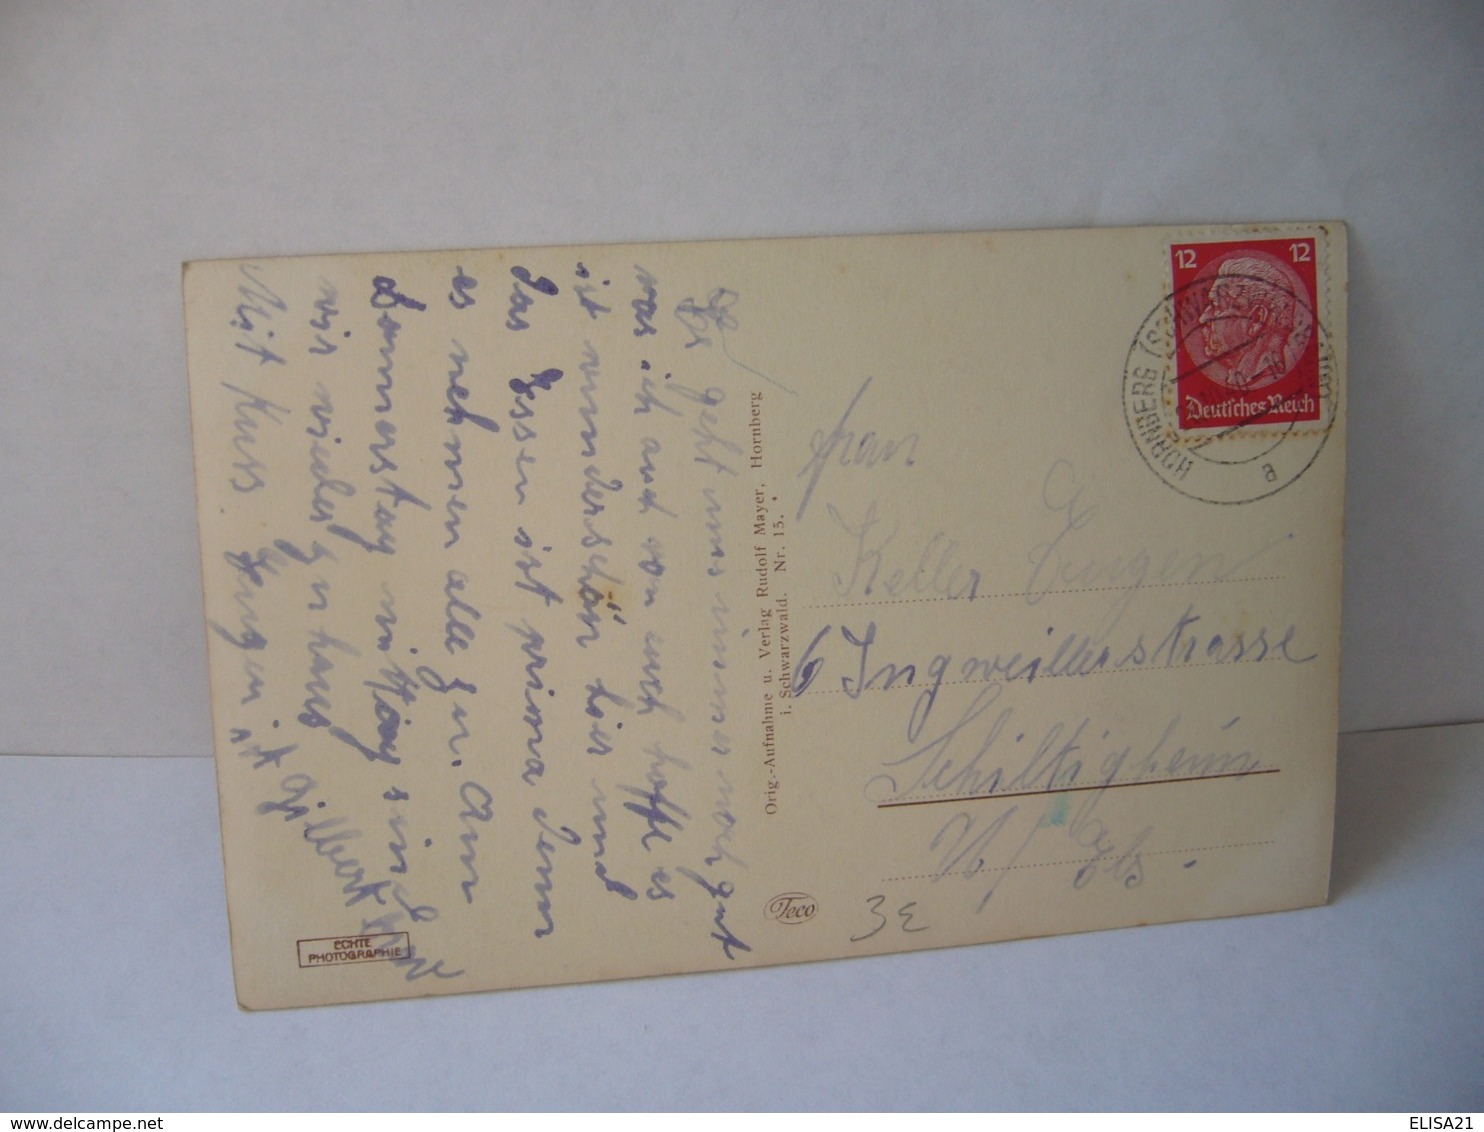 Es geht uns immer noch gut
was ich auch von euch hoffe es
ist wunderschön hier und
das Essen ist prima denn
es nehmen alle zu. Am
Donnerstag mittag sind
wir wieder zu haus
Mit Kuss Eugen
Gilbert
ECHTE
PHOTOGRAPHIE
Orig.-Aufnahme u. Verlag Rudolf Mayer, Hornberg
i. Schwarzwald. Nr. 15.
Teco
12 12
Deutsches Reich
HORNBERG
a
Frau
Keller Eugen
6 Ingweillerstrasse
Schiltigheim
Els.
3E
ELISA21
https://www.delcampe.net